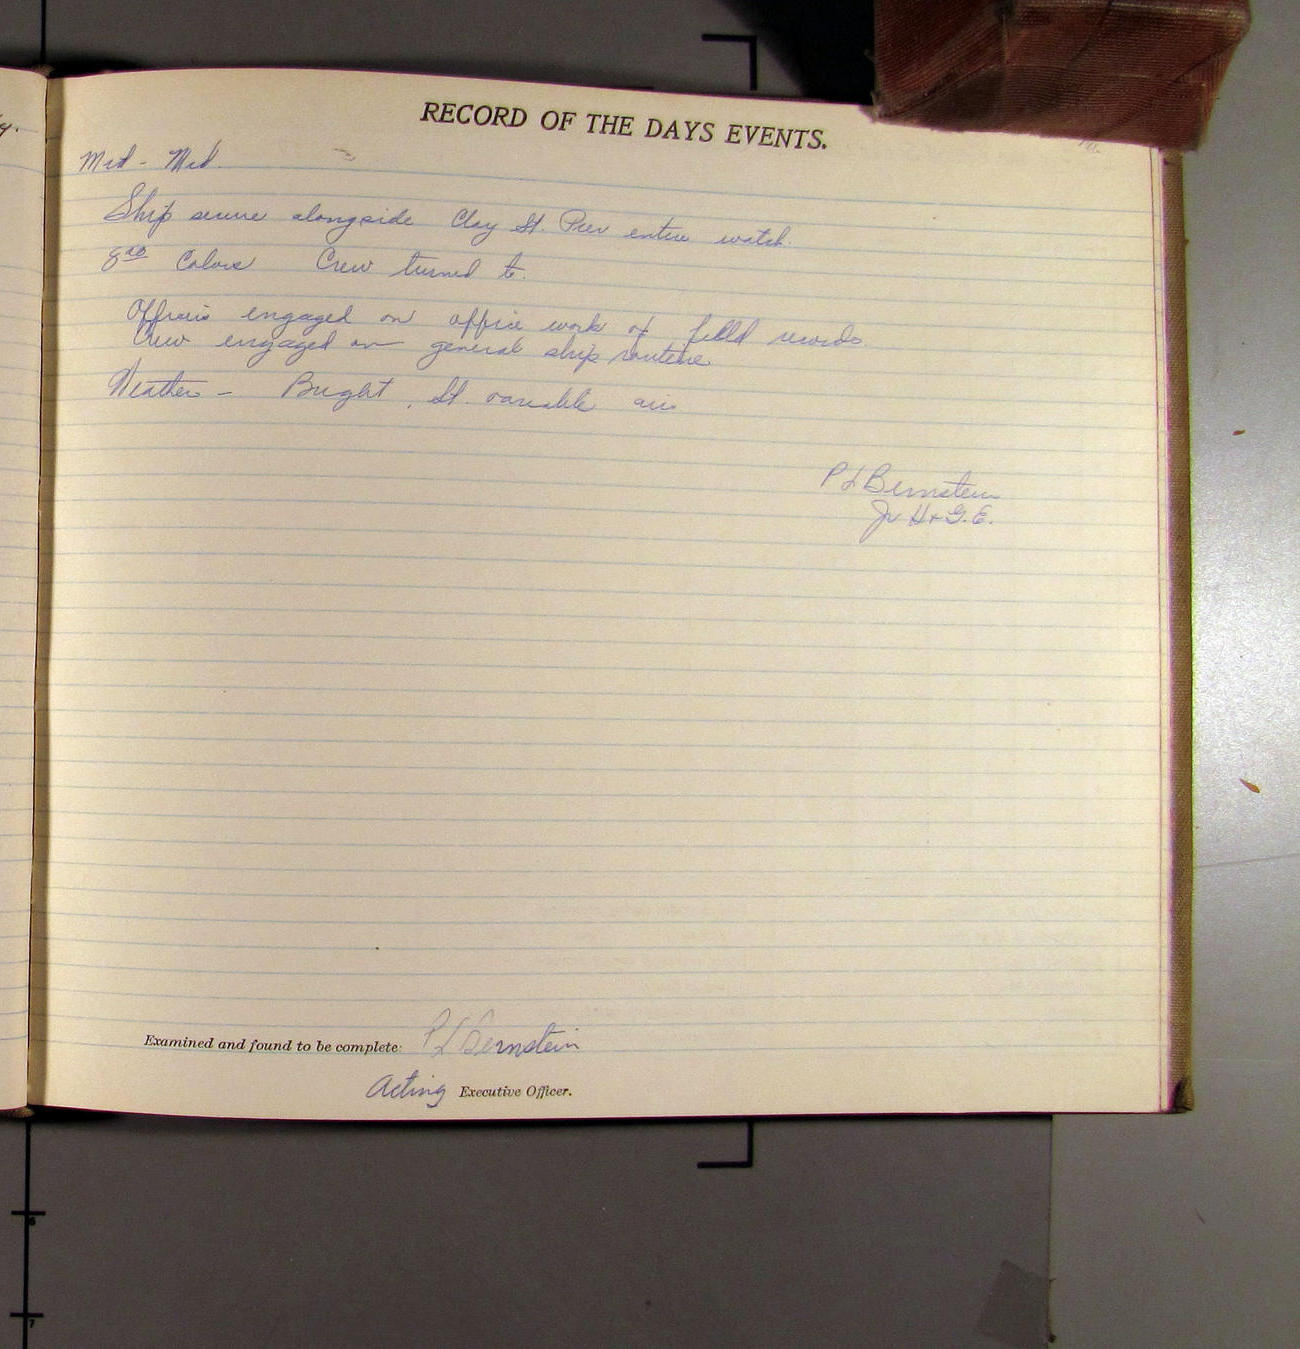 RECORD OF THE DAYS EVENTS.
Mid - Mid.
Ship secure alongside Clay St. Pier entire watch.
8⁰⁰ Colors Crew turned to.
Officers engaged on office work of field records.
Crew engaged on general ship routine
Weather - Bright, lt. variable airs
P L Bernstein
Jr H & G.E.
Examined and found to be complete: P L Bernstein
Acting Executive Officer.
6
7